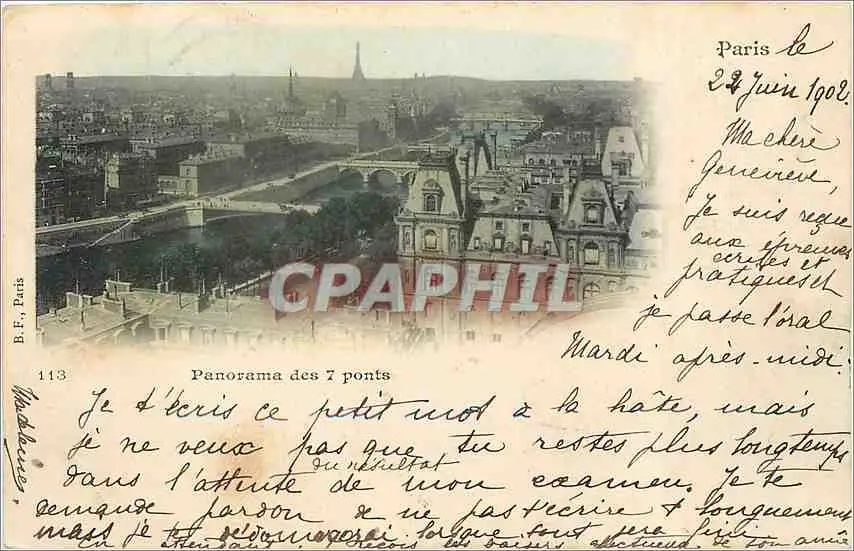 Paris le
22 Juin 1902.
Ma chère
Geneviève,
Je suis reçue
aux épreuves
écrites et
pratiques et
je passe l'oral
Mardi après-midi.
CPAPHIL
B. F., Paris
113 Panorama des 7 ponts
Je t'écris ce petit mot à la hâte, mais
je ne veux pas que tu restes plus longtemps
dans l'attente du résultat de mon examen. Je te
demande pardon de ne pas t'écrire + longuement
mais je te dédommagerai lorsque tout sera fini
En attendant, reçois les baisers affectueux de ton amie
Madeleine.